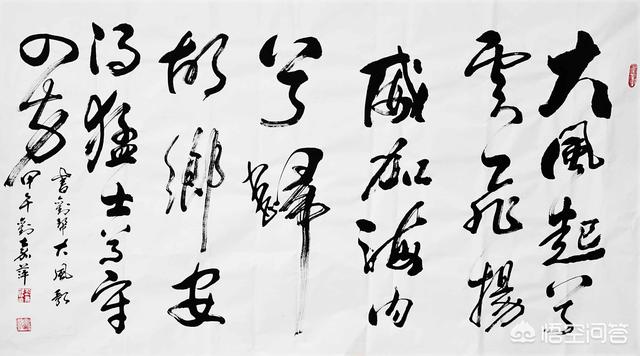 大風起兮
雲飛揚
威加海内
兮歸
故鄉安
得猛士兮守
四方
書劉邦大風歌
甲午劉嘉萍
悟空问答